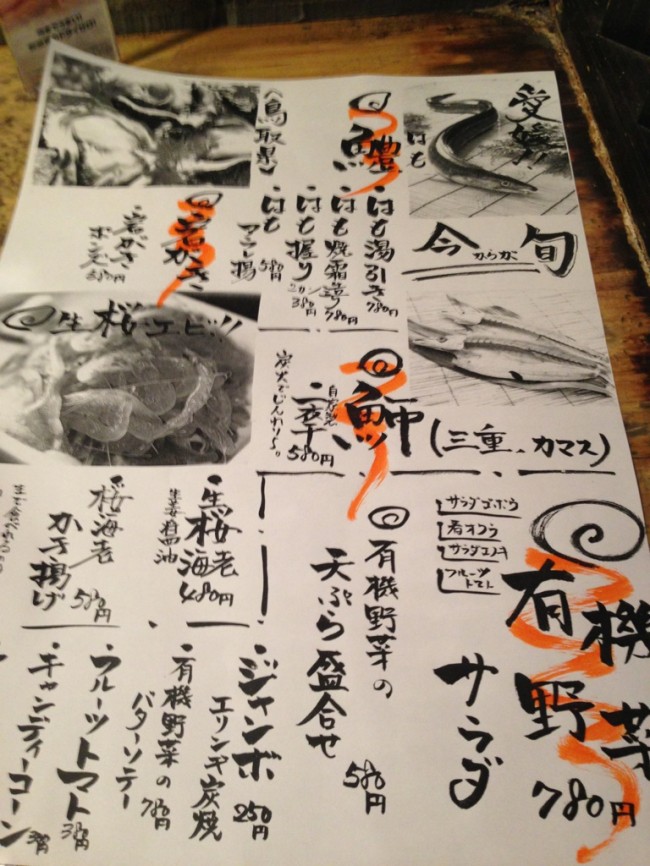 愛媛!!
はも
今からが旬
(三重、カマス)
鱧
はも湯引き 780円
はも焼霜造り 780円
はも握り 2カン 380円
はも
フライ揚 580円
(鳥取県)
岩がき
岩がき
ポン酢 580円
生桜エビ!!
魳
自家製
一夜干 580円
炭火でじんわり〜。
有機野菜
サラダ
780円
サラダゴボウ
春オクラ
サラダエノキ
フルーツトマト
有機野菜の
天ぷら盛合せ
580円
生桜海老
生姜醤油
480円
桜海老
かき揚げ
580円
生で食べれる
ジャンボ
エリンギ炭焼
250円
有機野菜の
バターソテー
780円
フルーツトマト
380円
キャンディーコーン